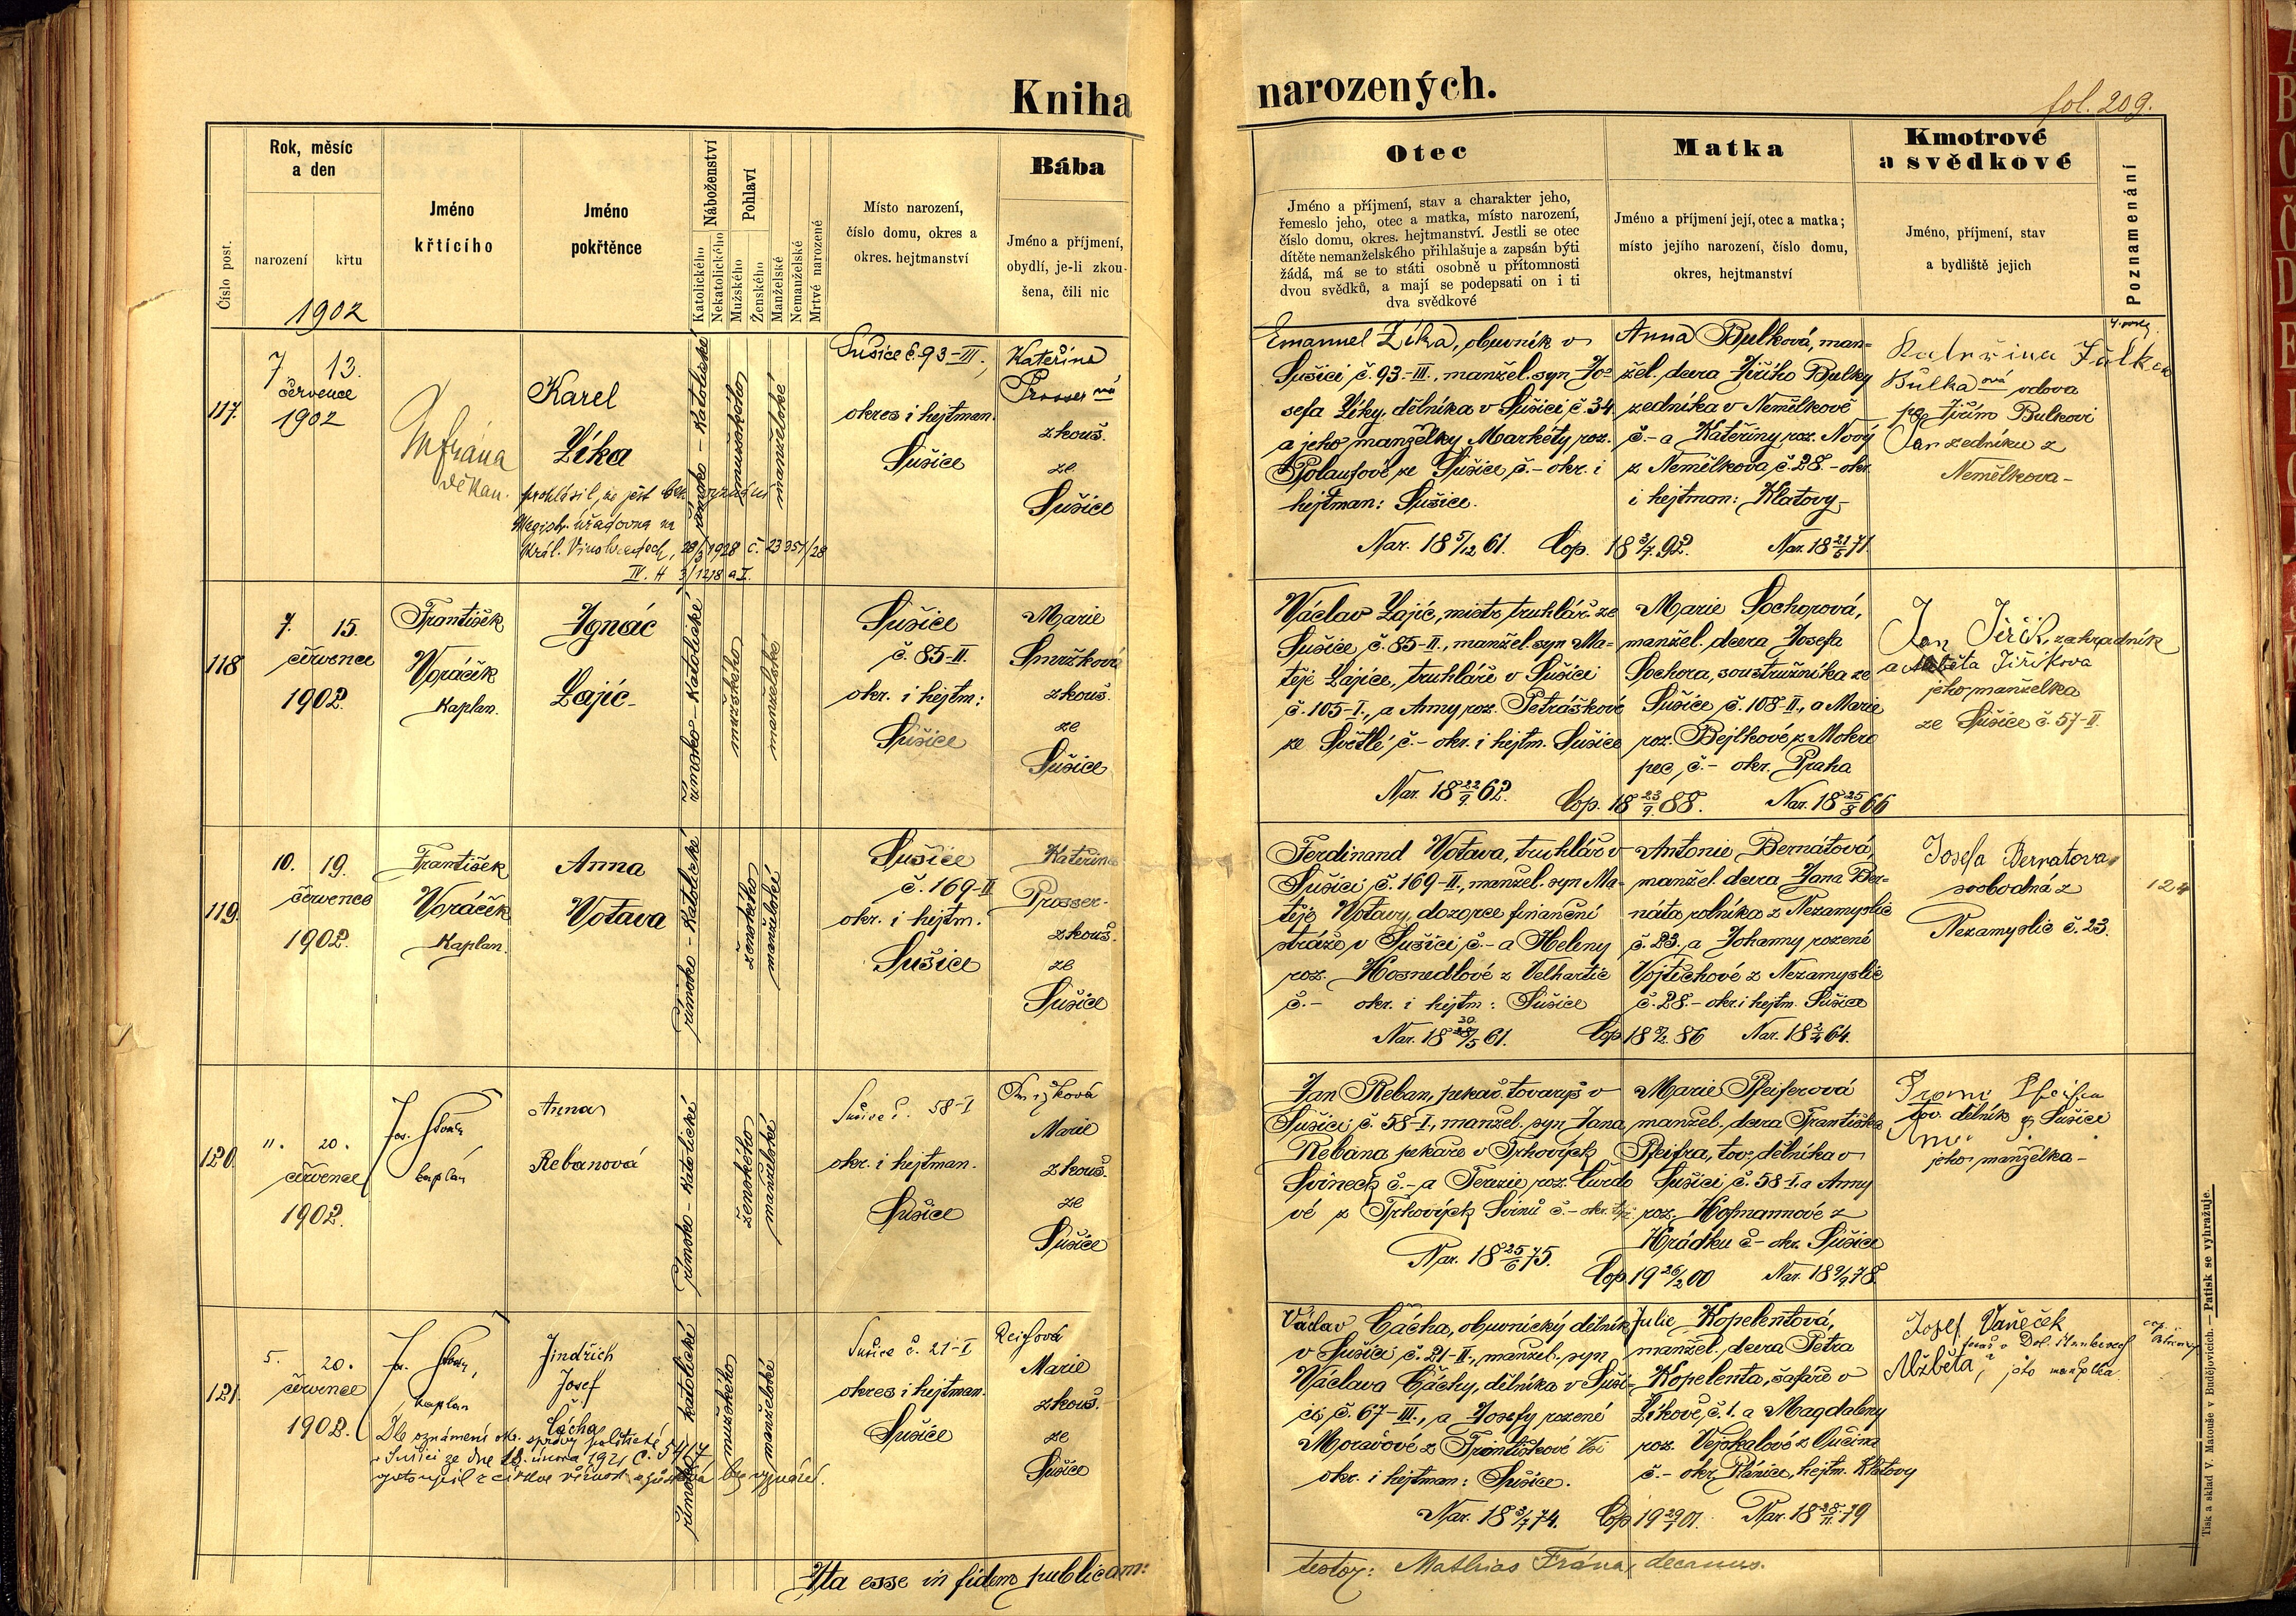 Kniha
narozených.
fol. 209.
Číslo post.
Rok, měsíc
a den
narození
křtu
1902
Jméno
křtícího
Jméno
pokřtěnce
Náboženství
Katolického
Nekatolického
Pohlaví
Mužského
Ženského
Manželské
Nemanželské
Mrtvě narozené
Místo narození,
číslo domu, okres a
okres. hejtmanství
Bába
Jméno a příjmení,
obydlí, je-li zkou-
šena, čili nic
Otec
Jméno a příjmení, stav a charakter jeho,
řemeslo jeho, otec a matka, místo narození,
číslo domu, okres. hejtmanství. Jestli se otec
dítěte nemanželského přihlašuje a zapsán býti
žádá, má se to státi osobně u přítomnosti
dvou svědků, a mají se podepsati on i ti
dva svědkové
Matka
Jméno a příjmení její, otec a matka;
místo jejího narození, číslo domu,
okres, hejtmanství
Kmotrové
a svědkové
Jméno, příjmení, stav
a bydliště jejich
Poznamenání
117.
7 13.
července
1902
M Frána
děkan.
Karel
Zíka
prohlásil, že jest bez vyznání
Magistr. úřadovna na
Král. Vinohradech, 28/3 1928 č. 23357/28
římsko-katolické
mužského
manželské
Sušice č. 93-III.,
okres i hejtman.
Sušice
Kateřina
Prosserová
zkouš.
ze
Sušice
Emanuel Zíka, obuvník v
Sušici č. 93-III., manžel. syn Jo-
sefa Zíky, dělníka v Sušici č. 34.
a jeho manželky Markéty, roz.
ze Sušice č.- okr. i
hejtman: Sušice.
Nar. 18 5/12 61. Cop. 18 3/7 92. Nar. 18 21/6 71.
Anna Bulková, man-
žel. dcera Jiřího Bulky
zedníka v Nemělkově
č.- a Kateřiny roz. Nový
z Nemělkova č. 28.- okr.
i hejtman: Klatovy-
Kateřina
Bulková vdova
po Jiřím Bulkovi
zedníku z
Nemělkova-
118
7. 15.
července
1902.
František
Voráček
Kaplan.
Ignác
Zajíc-
římsko-katolické
mužského
manželské
Sušice
č. 85-II.
okr. i hejtm:
Sušice
Marie
Smržková
zkouš.
ze
Sušice
Václav Zajíc, mistr truhlář ze
Sušice č. 85-II., manžel. syn Ma-
těje Zajíce, truhláře v Sušici
č. 105-I., a Anny, roz. Petráškové
ze Světlé, č.- okr. i hejtm. Sušice
Nar. 18 22/9 62. Cop. 18 23/9 88. Nar. 18 25/8 66
Marie Sochorová,
manžel. dcera Josefa
Sochora, soustružníka ze
Sušice č. 108-II., a Marie
roz. Bejlkové z Mokro
pec, č.- okr. Praha
Jan Jiřík, zahradník
Jiříkova
jeho manželka
ze Sušice č. 57-II.
119.
10. 19.
července
1902.
František
Voráček
Kaplan.
Anna
Votava
římsko-katolické
ženského
manželské
Sušice
č. 169-II
okr. i hejtm.
Sušice
Kateřina
Prosser-
zkouš.
ze
Sušice
Ferdinand Votava, truhlář v
Sušici č. 169-II., manžel. syn Ma-
těje Votavy, dozorce finanční
stráže v Sušici č.- a Heleny
roz. Hosnedlové z Velhartic
č.- okr. i hejtm: Sušice
Nar. 18 30/5 61. Cop 18 9/2. 86 Nar. 18 2/4 64.
Antonie Bernátová,
manžel. dcera Jana Ber-
náta rolníka z Nezamyslic
č. 23. a Johanny rozené
Vojtěchové z Nezamyslic
č. 28.- okr. i hejtm. Sušice
Josefa Bernatova
svobodná z
Nezamyslic č. 23.
124
120.
11. 20.
července
1902.
Jos.
kaplan
Anna
Rebanová
římsko-katolické
ženského
manželské
Sušice č. 58-I
okr. i hejtman.
Sušice
Smržková
Marie
zkouš.
ze
Sušice
Jan Reban, pekař. tovaryš v
Sušici č. 58-I., manžel. syn Jana
Rebana pekaře v Trhových
Svinech č.- a Terezie roz. Čurdo
vé z Trhových Svinů č.- okr. týž
Nar. 18 25/6 75. Cop 19 26/2 00 Nar. 18 9/9 78.
Marie Pfeiferová
manžel. dcera Františka
Pfeifra, tov. dělníka v
Sušici č. 58-I. a Anny
roz. Hofmannové z
Hrádku č- okr. Sušice
tov. dělník z Sušice
jeho manželka-
121.
5. 20.
července
1902.
Jos.
kaplan
Jindřich
Josef
Čácha
Dle oznámení okr. správy politické
v Sušici ze dne 18. února 1921 č. 5417
vystoupil z církve
bez vyznání.
římsko katolické
mužského
manželské
Sušice č. 21-I
okres i hejtman.
Sušice
Reifová
Marie
zkouš.
ze
Sušice
Václav Čácha, obuvnický dělník
v Sušici č. 21-II., manžel. syn
Václava Čáchy, dělníka v Suši-
ci, č. 67-III., a Josefy rozené
okr. i hejtman: Sušice.
Nar. 18 3/7 74. Cop 19 29/7 01. Nar. 18 28/11 79
Julie Kopelentová,
manžel. dcera Petra
Kopelenta, šafáře v
Zíkově č. 1. a Magdaleny
roz. Vejskalové z Oučína
č.- okr. Plánice, hejtm. Klatovy
Josef Vaněček
Alžběta, jeho manželka
Ita esse in fidem publicam:
testor: Mathias Frána, decanus.
Tisk a sklad V. Matouše v Budějovicích. — Patisk se vyhražuje.